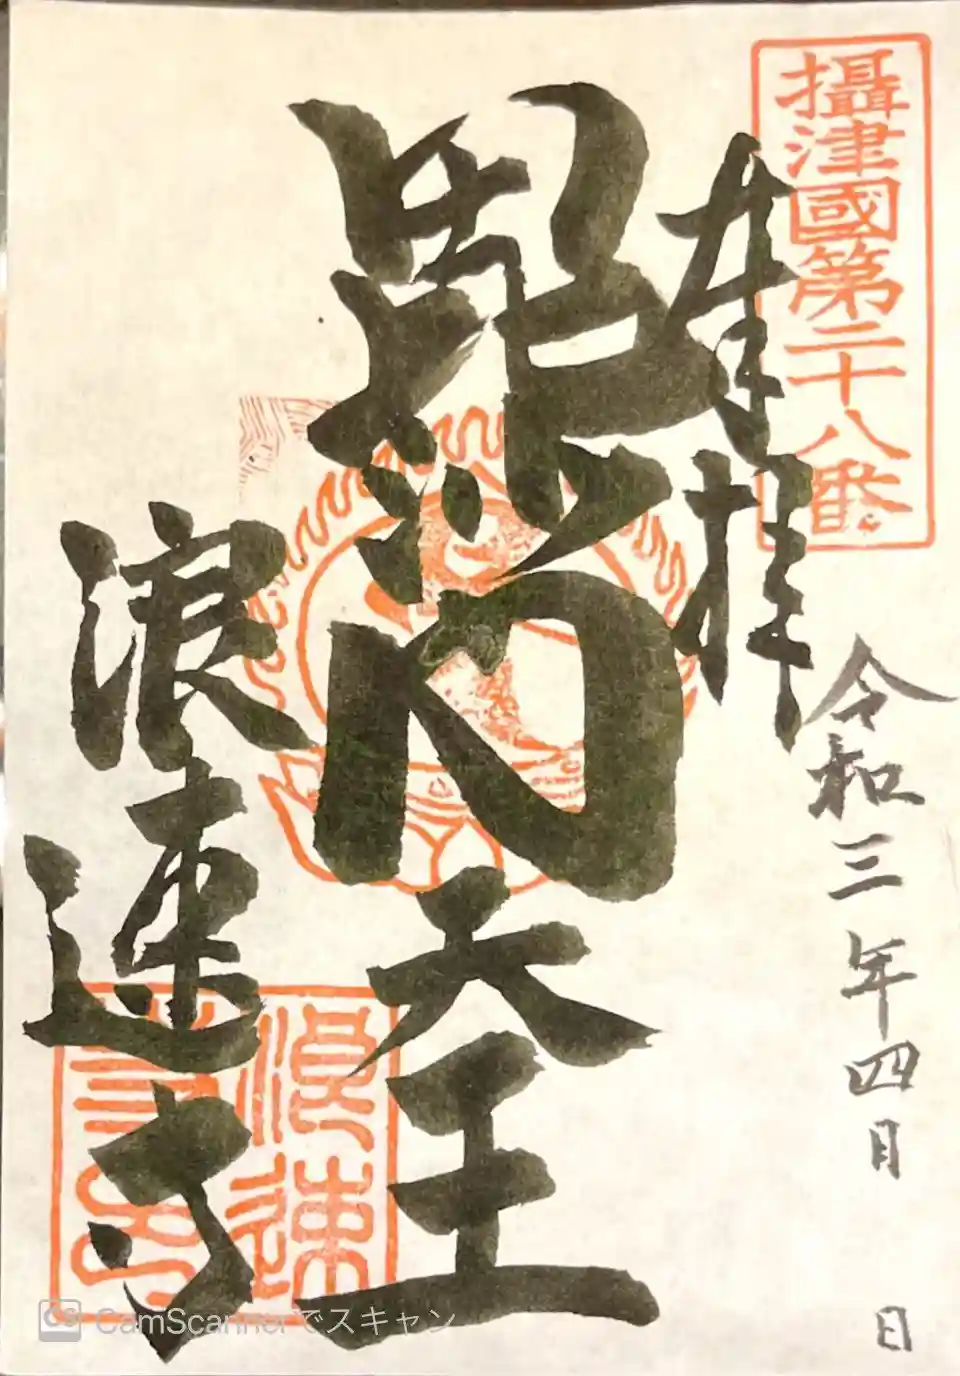 攝津國第二十八番
奉拝
令和三年四月 日
毘沙門天王
浪速寺
浪速
CS CamScannerでスキャン